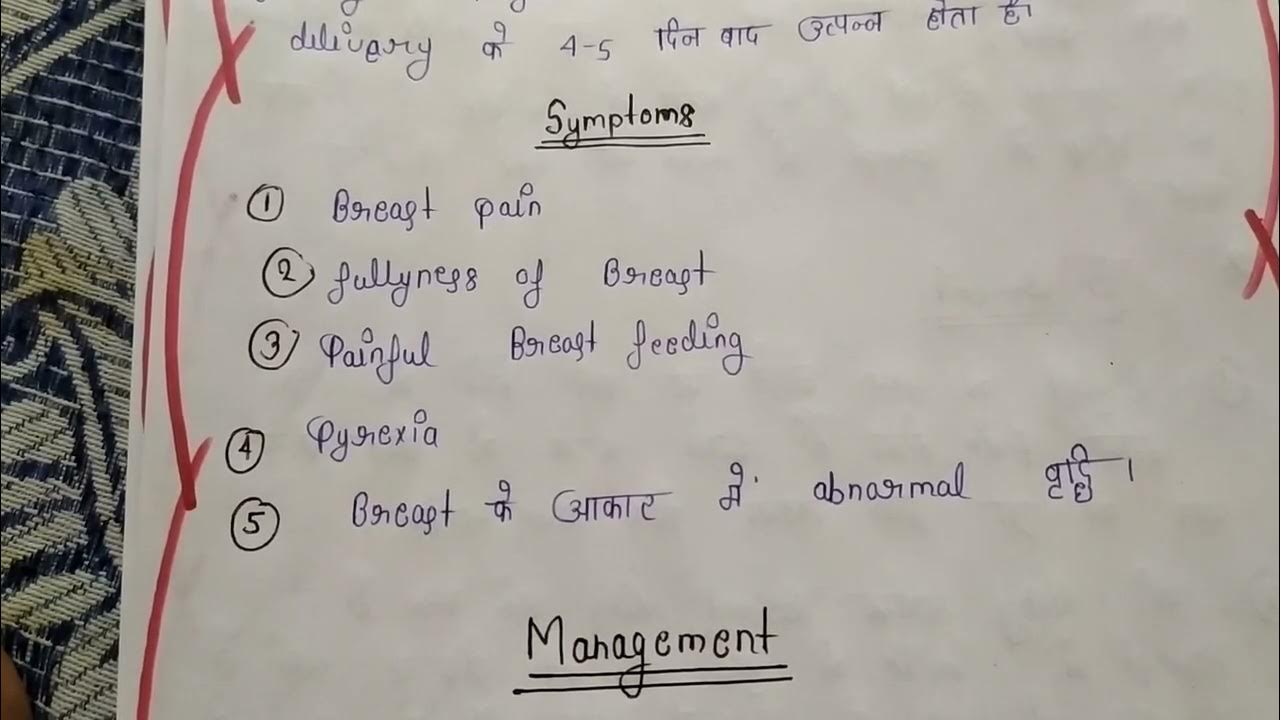 delivery के 4-5 दिन बाद उत्पन्न होता है।
Symptoms
① Breast pain
② fullyness of Breast
③ Painful Breast feeding
④ Pyrexia
⑤ Breast के आकार में abnarmal वृद्धि ।
Management